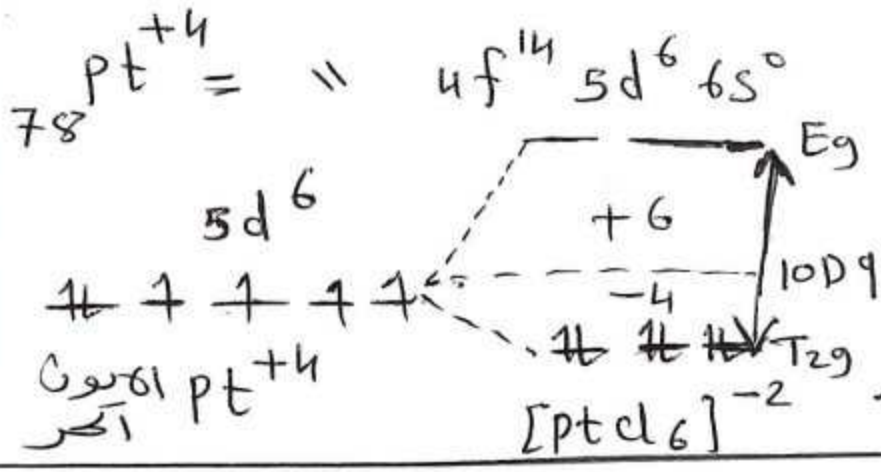 78Pt+4 = " 4f14 5d6 6s°
Eg
5d6
+6
10Dq
-4
T2g
الايون الحر pt+4
[ptcl6]-2